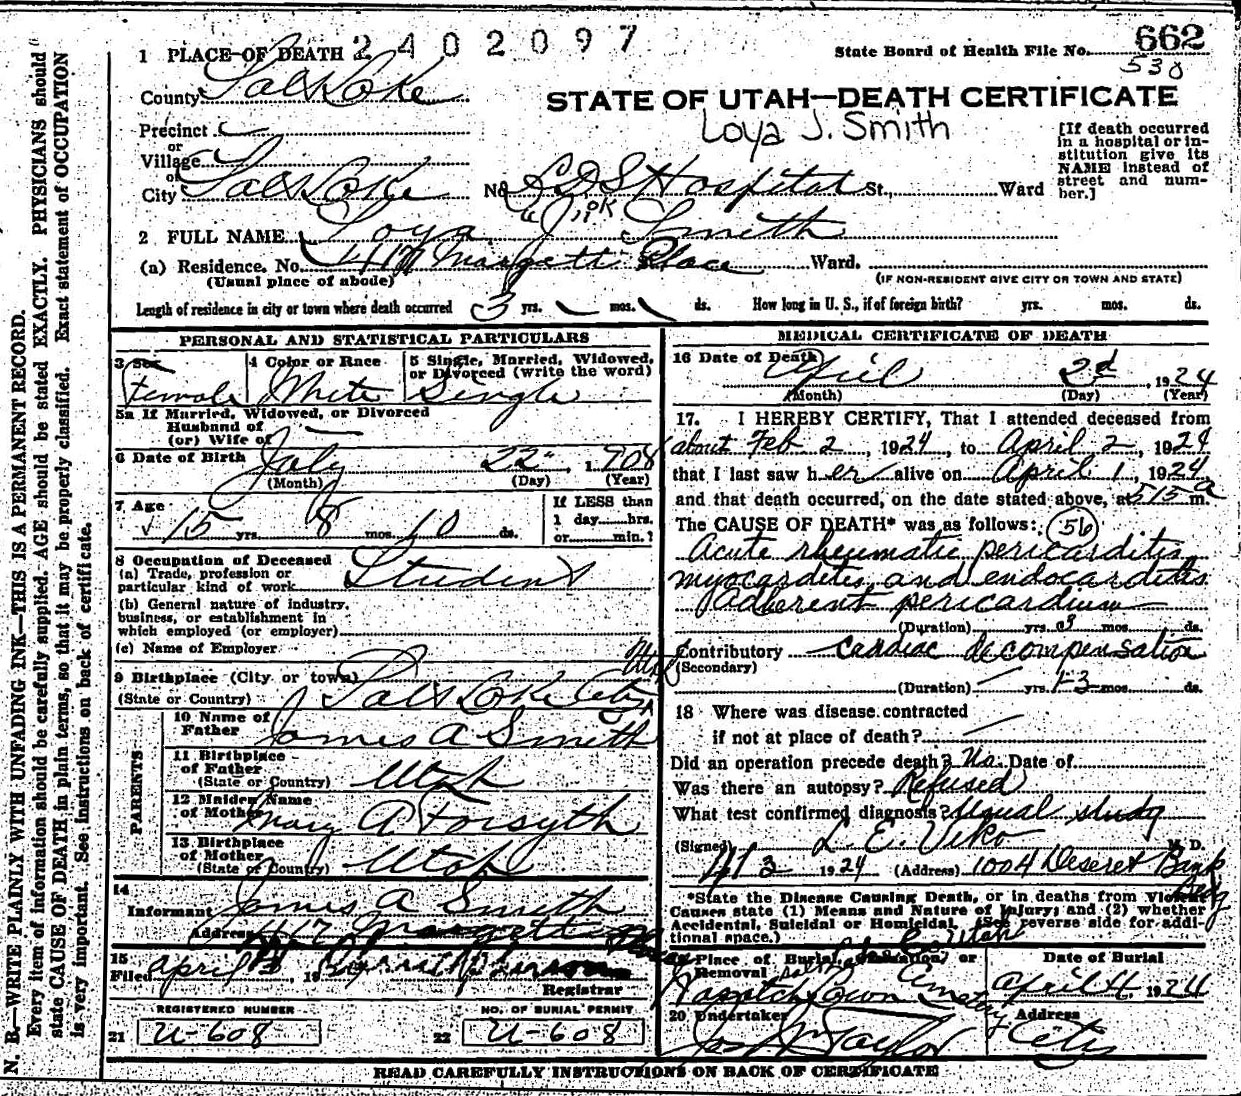 1 PLACE OF DEATH 2402097
State Board of Health File No. 662
530
County Salt Lake
STATE OF UTAH—DEATH CERTIFICATE
Loya J. Smith
Precinct
or
Village
or
City Salt Lake No. LDS Hospital St., Ward
[If death occurred
in a hospital or in-
stitution give its
NAME instead of
street and num-
ber.]
2 FULL NAME Loya "J" Smith
(a) Residence. No. 417 Margetts Place Ward.
(Usual place of abode)
(IF NON-RESIDENT GIVE CITY OR TOWN AND STATE)
Length of residence in city or town where death occurred 3 yrs. mos. ds. How long in U. S., if of foreign birth? yrs. mos. ds.
PERSONAL AND STATISTICAL PARTICULARS
3 Sex 4 Color or Race 5 Single, Married, Widowed,
or Divorced (write the word)
Female White Single
5a If Married, Widowed, or Divorced
Husband of
(or) Wife of
6 Date of Birth July 22 1908
(Month) (Day) (Year)
7 Age
15 yrs. 8 mos. 10 ds.
If LESS than
1 day......hrs.
or......min.?
8 Occupation of Deceased
(a) Trade, profession or
particular kind of work Student
(b) General nature of industry,
business, or establishment in
which employed (or employer)
(c) Name of Employer
9 Birthplace (City or town) Salt Lake City Utah
(State or Country)
PARENTS
10 Name of
Father James A Smith
11 Birthplace
of Father
(State or Country) Utah
12 Maiden Name
of Mother Mary A Forsyth
13 Birthplace
of Mother
(State or Country) Utah
14
Informant James A Smith
Address 417 Margetts Place
15
Filed April 3, 19
Registrar
REGISTERED NUMBER NO. OF BURIAL PERMIT
21 U-608 22 U-608
MEDICAL CERTIFICATE OF DEATH
16 Date of Death
April 2d, 1924
(Month) (Day) (Year)
17. I HEREBY CERTIFY, That I attended deceased from
about Feb 2, 1924, to April 2, 1924
that I last saw her alive on April 1, 1924
and that death occurred, on the date stated above, at 515 a m.
The CAUSE OF DEATH* was as follows: 56
Acute rheumatic pericarditis
myocarditis, and endocarditis
Adherent pericardium
(Duration) yrs. mos. ds.
Contributory Cardiac decompensation
(Secondary)
(Duration) yrs. mos. ds.
18 Where was disease contracted
if not at place of death?
Did an operation precede death? No. Date of
Was there an autopsy? Refused
What test confirmed diagnosis? Usual study
(Signed) L. E. Viko M. D.
4/3 1924 (Address) 1004 Deseret Bank
Bldg
*State the Disease Causing Death, or in deaths from Violent
Causes state (1) Means and Nature of Injury; and (2) whether
Accidental, Suicidal or Homicidal. (See reverse side for addi-
tional space.)
19 Place of Burial, Cremation, or
Removal
Wasatch Lawn Cemetery
Utah
Date of Burial
April 4, 1924
20 Undertaker Address
Jos. Wm Taylor City
READ CAREFULLY INSTRUCTIONS ON BACK OF CERTIFICATE
N. B.—WRITE PLAINLY WITH UNFADING INK—THIS IS A PERMANENT RECORD.
Every item of information should be carefully supplied. AGE should be stated EXACTLY. PHYSICIANS should
state CAUSE OF DEATH in plain terms, so that it may be properly classified. Exact statement of OCCUPATION
is very important. See instructions on back of certificate.